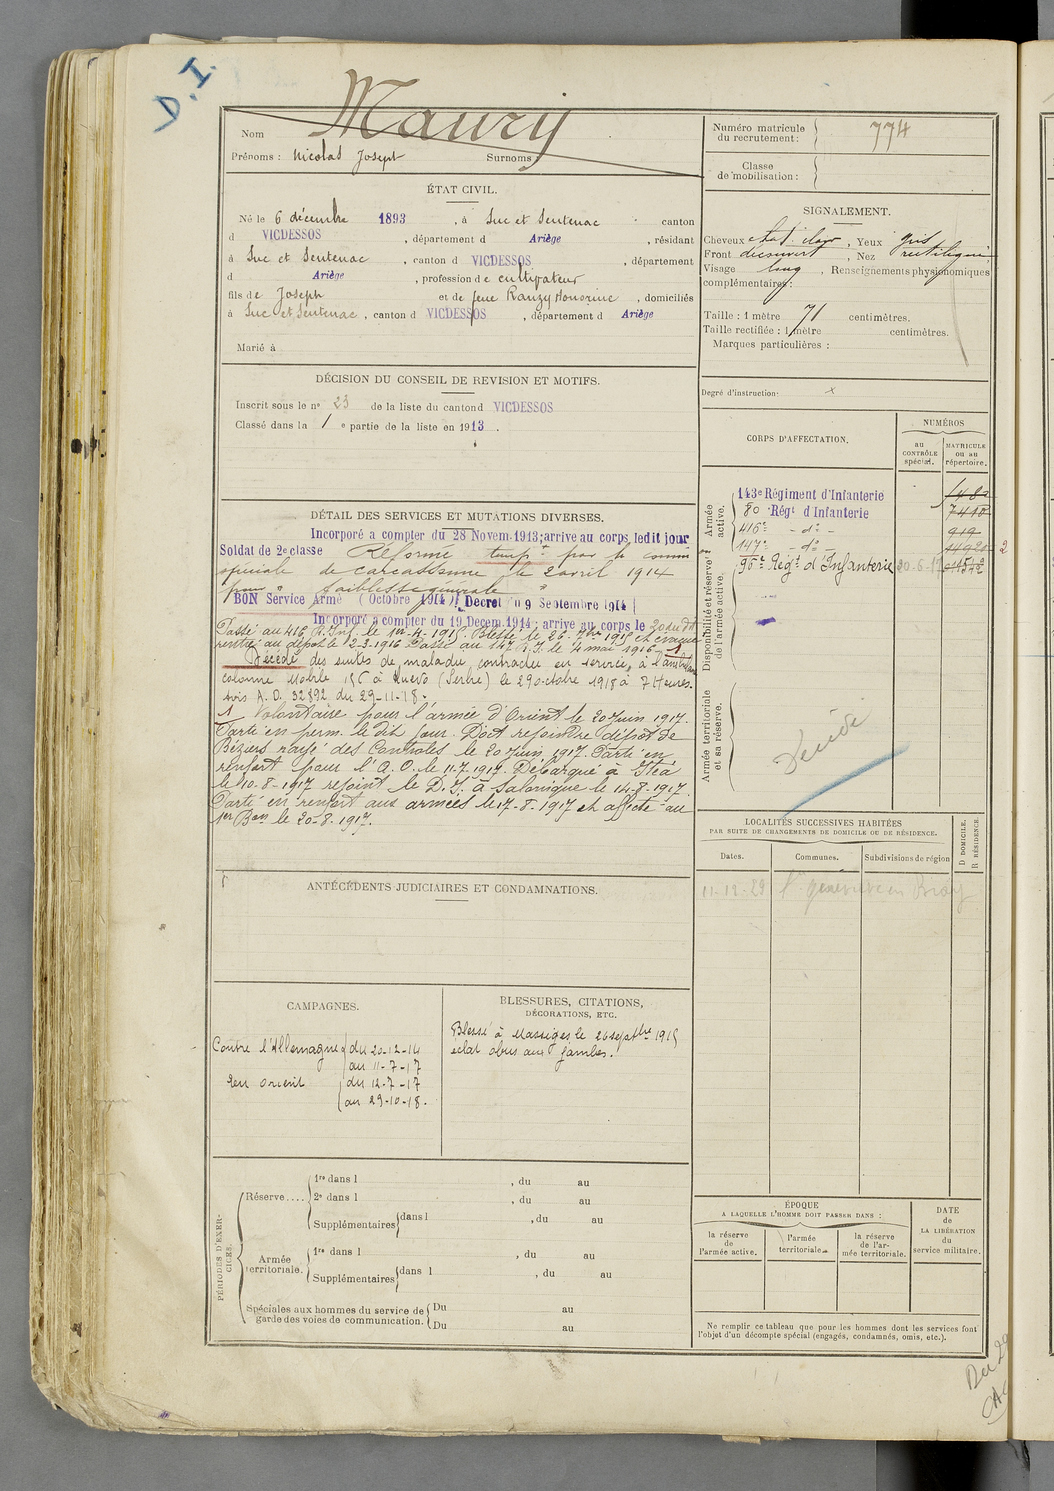 D.I.
Nom Maury
Prénoms : Nicolas Joseph Surnoms :
ÉTAT CIVIL.
Né le 6 décembre 1893 , à Suc et Sentenac canton
d VICDESSOS , département d Ariège , résidant
à Suc et Sentenac , canton d VICDESSOS , département
d Ariège , profession de cultivateur
fils de Joseph et de feue Rauzy Honorine , domiciliés
à Suc et Sentenac , canton d VICDESSOS , département d Ariège
Marié à
DÉCISION DU CONSEIL DE REVISION ET MOTIFS.
Inscrit sous le n° 23 de la liste du canton d VICDESSOS
Classé dans la 1 e partie de la liste en 1913 .
DÉTAIL DES SERVICES ET MUTATIONS DIVERSES.
Incorporé a compter du 28 Novem. 1913; arrive au corps ledit jour
Soldat de 2e classe Réformé temp.re par la comm
spéciale de Carcassonne le 2 avril 1914
pour faiblesse générale
BON Service Armé (Octobre 1914) Decret du 9 Septembre 1914
Incorporé a compter du 19 Decem. 1914; arrive au corps le 20 du dt
Passé au 416 R. Inf. le 1er-4-1915. Blessé le 26 7bre 1915 et évacué
rentré au dépôt le 2-3-1916 Passé au 147 R.I. le 4 mai 1916 1
Décédé des suites de maladie contractée en service, à l'ambulance
colonne mobile (Serbie) le 29 octobre 1918 à 7 heures.
avis A.O. 32892 du 29-11-18.
1 Volontaire pour l'armée d'Orient le 20 juin 1917.
Parti en perm. le dit jour. Doit rejoindre dépôt de
Béziers rayé des Contrôles le 20 juin 1917. Parti en
renfort pour l'A.O. le 11-7-1917. Débarqué à Itéa
le 10-8-1917 rejoint le D.I. à Salonique le 14-8-1917.
Parti en renfort aux armées le 17-8-1917 et affecté au
1er Bon le 20-8-1917.
ANTÉCÉDENTS JUDICIAIRES ET CONDAMNATIONS.
CAMPAGNES.
Contre l'Allemagne du 20-12-14
au 11-7-17
en Orient du 12-7-17
au 29-10-18.
BLESSURES, CITATIONS,
DÉCORATIONS, ETC.
Blessé à Massiges le 26 septbre 1915
éclat obus aux jambes.
PÉRIODES D'EXERCICES.
Réserve....
1re dans l , du au
2e dans l , du au
Supplémentaires dans l , du au
Armée territoriale.
1re dans l , du au
Supplémentaires dans l , du au
Spéciales aux hommes du service de garde des voies de communication.
Du au
Du au
Numéro matricule
du recrutement : 774
Classe
de mobilisation :
SIGNALEMENT.
Cheveux chat. clair , Yeux gris
Front découvert , Nez rectiligne
Visage long , Renseignements physionomiques
complémentaires :
Taille : 1 mètre 71 centimètres.
Taille rectifiée : 1 mètre centimètres.
Marques particulières :
Degré d'instruction : x
CORPS D'AFFECTATION.
NUMÉROS
au CONTRÔLE spécial.
MATRICULE ou au répertoire.
Armée active.
143e Régiment d'Infanterie
80 Régt d'Infanterie 7410
416e - do - 919
147e - do -
96e Régt d'Infanterie 20-6-17
2
Disponibilité et réserve de l'armée active.
Armée territoriale et sa réserve.
Décédé
LOCALITÉS SUCCESSIVES HABITÉES
PAR SUITE DE CHANGEMENTS DE DOMICILE OU DE RÉSIDENCE.
Dates. Communes. Subdivisions de région
D DOMICILE.
R RÉSIDENCE.
11-12-29
ÉPOQUE
A LAQUELLE L'HOMME DOIT PASSER DANS :
la réserve de l'armée active.
l'armée territoriale.
la réserve de l'armée territoriale.
DATE de LA LIBÉRATION du service militaire.
Ne remplir ce tableau que pour les hommes dont les services font
l'objet d'un décompte spécial (engagés, condamnés, omis, etc.).